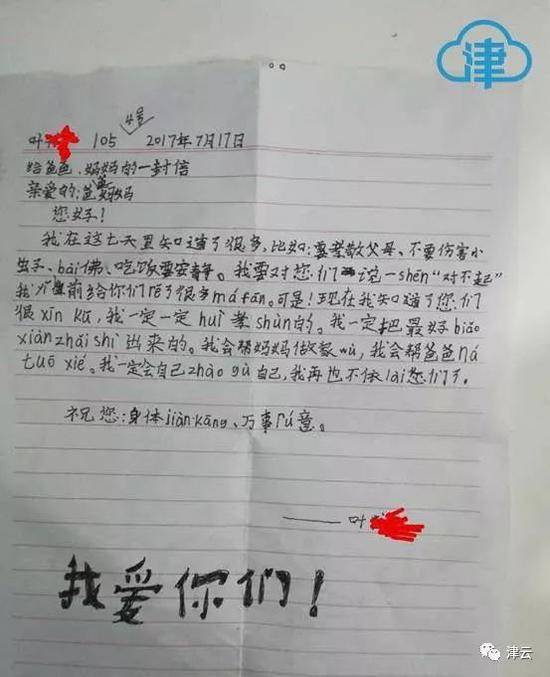 津
4号
叶 105 2017年7月17日
给爸爸、妈妈的一封信
亲爱的:爸爸妈妈
您好!
我在这七天里知道了很多,比如:要孝敬父母、不要伤害小
虫子、bài佛、吃饭要安静。我要对您们说一shēn“对不起”
我以前给你们了很多má fán。可是!现在我知道了您们
很xīn kǔ,我一定一定huì孝shùn的。我一定把最好biǎo
xiàn zhǎi shì出来的。我会帮妈妈做家wù,我会帮爸爸ná
tuō xié。我一定会自己zhào gù自己,我再也不依lài您们了。
祝您:身体jiàn kāng、万事rú意。
——叶
我爱你们!
津云